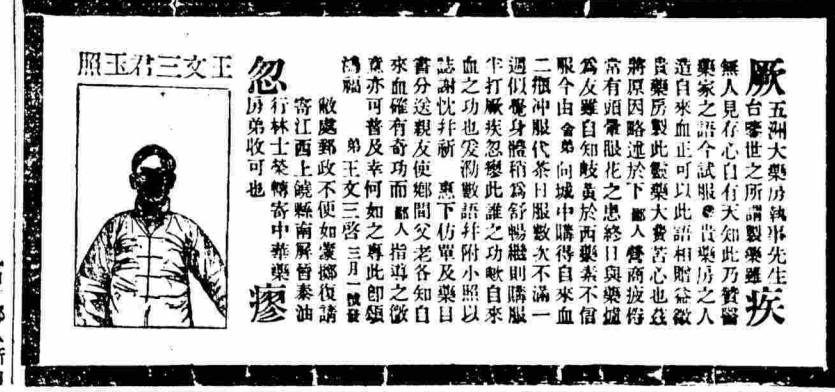 厥疾
五洲大藥房執事先生
台鑒世之所謂製藥雖
無人見存心自有天知此乃贊醫
藥家之語今試服貴藥房之人
造自來血正可以此語相贈益徵
貴藥房製此靈藥大費苦心也茲
將原因略述於下鄙人營商疲
常有頭暈眼花之患終日與藥爐
為友雖自知岐黃於西藥素不信
服今由舍弟向城中購得自來血
二瓶冲服代茶日服數次不滿一
週似覺身體稍為舒暢繼則購服
半打厥疾忽瘳此誰之功歟自來
血之功也爰泐數語幷附小照以
誌謝忱幷祈 惠下仿單及藥目
書分送親友使鄉閭父老各知自
來血確有奇功而鄙人指導之微
意亦可普及幸何如之專此即頌
鴻福 弟王文三啓 三月一號發
敝處郵政不便如蒙擲復請
寄江西上饒縣南屏晉泰油
行林士榮轉寄中華藥
房弟收可也
忽瘳
王文三君玉照